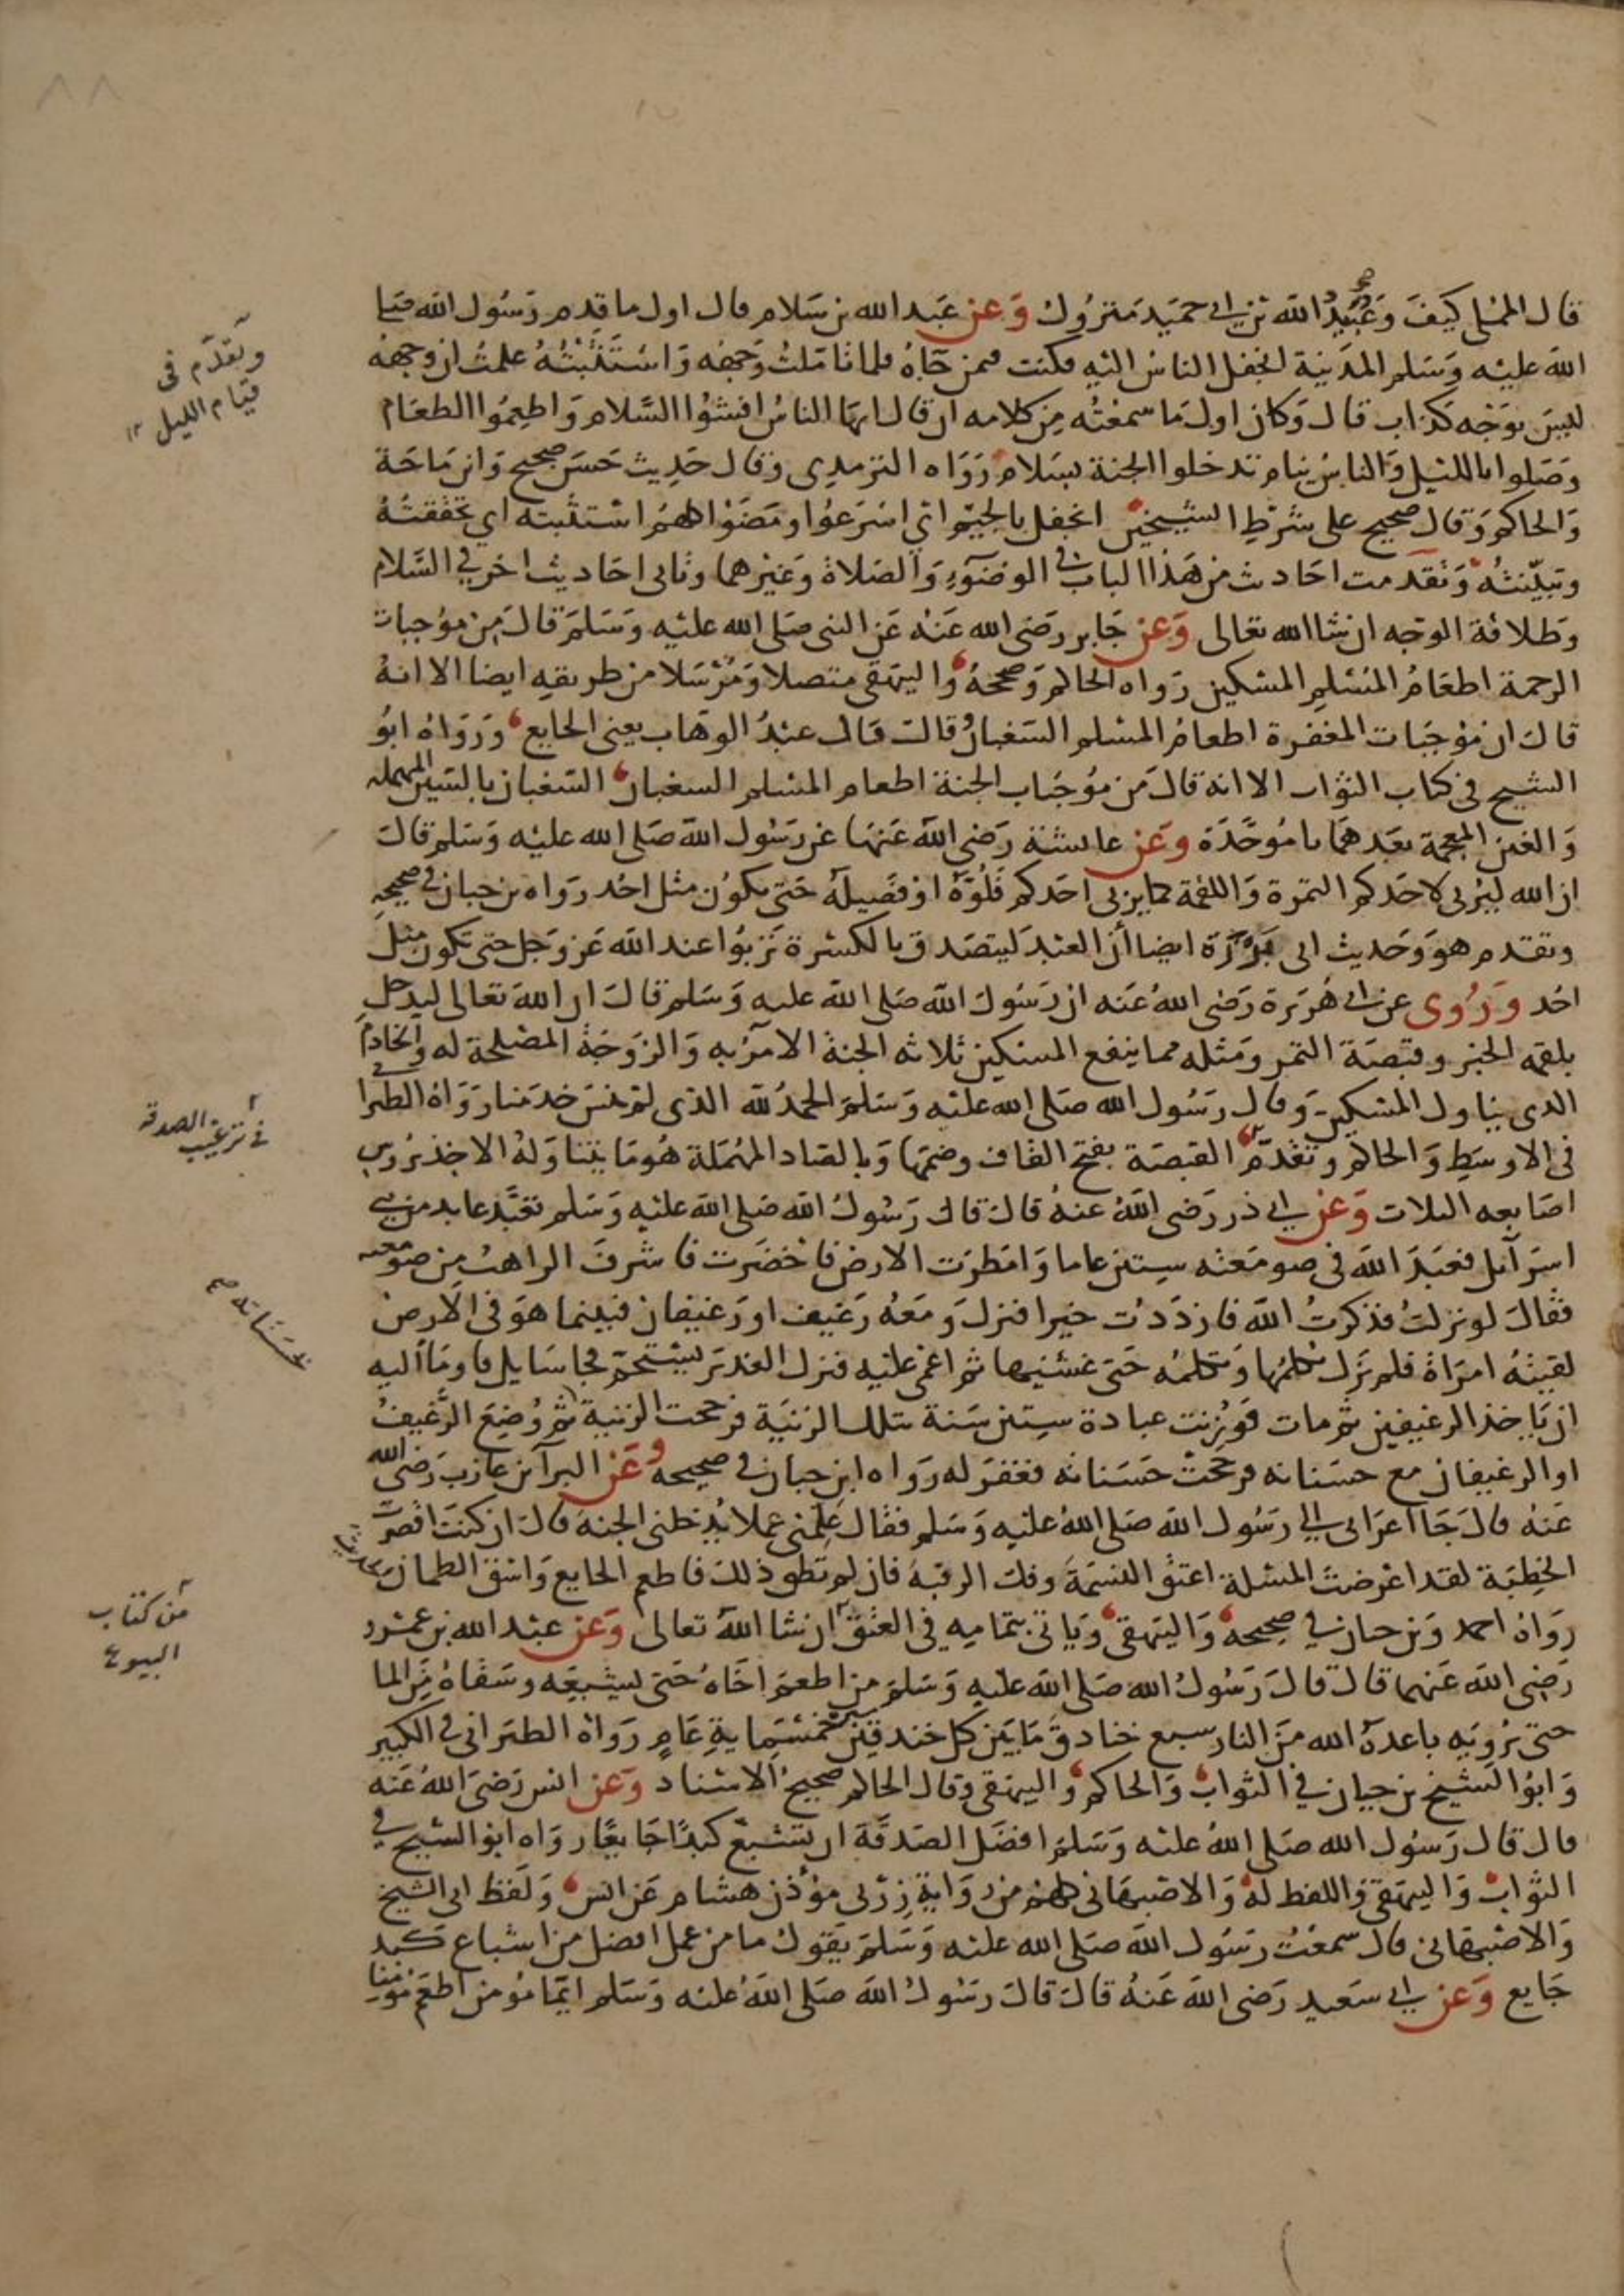 قال المملي كيف وعبيد الله بن ابي حميد متروك وعن عبد الله بن سلام قال اول ما قدم رسول الله صلى
الله عليه وسلم المدينة انجفل الناس اليه فكنت فمن جاه فلما تاملت وجهه واستثبته علمت ان وجهه
ليس بوجه كذاب قال وكان اول ما سمعته من كلامه ان قال ايها الناس افشوا السلام واطعموا الطعام
وصلوا بالليل والناس نيام تدخلوا الجنة بسلام رواه الترمدى وقال حديث حسن صحيح وابن ماجة
والحاكم وقال صحيح على شرط الشيخين انجفل بالجيم اي اسرعوا ومضوا كلهم استثبته اي تحققته
وتبينته وتقدمت احاديث من هذا الباب في الوضوء والصلاة وغيرهما وتاتى احاديث اخر في السلام
وطلاقة الوجه ان شا الله تعالى وعن جابر رضى الله عنه عن النبى صلى الله عليه وسلم قال من موجبات
الرحمة اطعام المسلم المسكين رواه الحاكم وصححه والبيهقى متصلا ومرسلا من طريقه ايضا الا انه
قال ان موجبات المغفرة اطعام المسلم السغبان قال قال عبد الوهاب يعنى الجايع ورواه ابو
الشيخ فى كتاب الثواب الا انه قال من موجبات الجنة اطعام المسلم السغبان السغبان بالسين المهمله
والغين المعجمة بعدهما با موحدة وعن عايشة رضى الله عنها عن رسول الله صلى الله عليه وسلم قال
ان الله ليربى لاحدكم التمرة واللقمة كما يربى احدكم فلوه او فصيله حتى يكون مثل احد رواه بن حبان في صحيحه
وتقدم هو وحديث ابى برزة ايضا أن العبد ليتصدق بالكسرة تربوا عند الله عز وجل حتى تكون مثل
احد وروى عن ابي هريرة رضى الله عنه ان رسول الله صلى الله عليه وسلم قال ان الله تعالى ليدخل
بلقمه الخبز وقبصة التمر ومثله مما ينفع المسكين ثلاثه الجنة الامر به والزوجة المصلحة له والخادم
الذى يناول المسكين وقال رسول الله صلى الله عليه وسلم الحمد لله الذى لم ينس خدمنا رواه الطبرا
فى الاوسط والحاكم وتقدم القبصة بفتح القاف وضمها وبالصاد المهملة هو ما يتناوله الاخذ بروس
اصابعه الثلاث وعن ابي ذر رضى الله عنه قال قال رسول الله صلى الله عليه وسلم تعبد عابد من بني
اسرآئل فعبد الله فى صومعته ستين عاما وامطرت الارض فاخضرت فاشرف الراهب من صومعته
فقال لو نزلت فذكرت الله فازددت خيرا فنزل ومعه رغيف او رغيفان فبينما هو فى الارض
لقيته امراة فلم تزل تكلمها وتكلمه حتى غشيها ثم اغمى عليه فنزل الغدير يستحم فجا سايل فاوما اليه
ان ياخذ الرغيفين ثم مات فوزنت عبادة ستين سنة بتلك الزنية فرجحت الزنية ثم وضع الرغيف
او الرغيفان مع حسناته فرجحت حسناته فغفر له رواه ابن حبان في صحيحه وعن البرآ بن عازب رضى الله
عنه قال جا اعرابى الي رسول الله صلى الله عليه وسلم فقال علمنى عملا يدخلنى الجنة قال ان كنت اقصرت
الخطبة لقد اعرضت المسلة اعتق النسمة وفك الرقبة فان لم تطق ذلك فاطعم الجايع واسق الظمان
رواه احمد وبن حبان في صحيحه والبيهقى وياتى بتمامه فى العتق ان شا الله تعالى وعن عبد الله بن عمرو
رضى الله عنهما قال قال رسول الله صلى الله عليه وسلم من اطعم اخاه حتى يشبعه وسقاه من الما
حتى يرويه باعده الله من النار سبع خنادق ما بين كل خندقين مسيرة خمسماية عام رواه الطبرانى فى الكبير
وابو الشيخ بن حبان في الثواب والحاكم والبيهقى وقال الحاكم صحيح الاسناد وعن انس رضى الله عنه
قال قال رسول الله صلى الله عليه وسلم افضل الصدقة ان تشبع كبدا جايعا رواه ابو الشيخ في
الثواب والبيهقى واللفظ له والاصبهانى كلهم من رواية زربى مؤذن هشام عن انس ولفظ ابى الشيخ
والاصبهانى قال سمعت رسول الله صلى الله عليه وسلم يقول ما من عمل افضل من اشباع كبد
جايع وعن ابي سعيد رضى الله عنه قال قال رسول الله صلى الله عليه وسلم ايما مؤمن اطعم مؤمنا
وتقدم فى
قيام الليل
في ترغيب الصدقة
حسناته صح
من كتاب
البيوع
٨٨